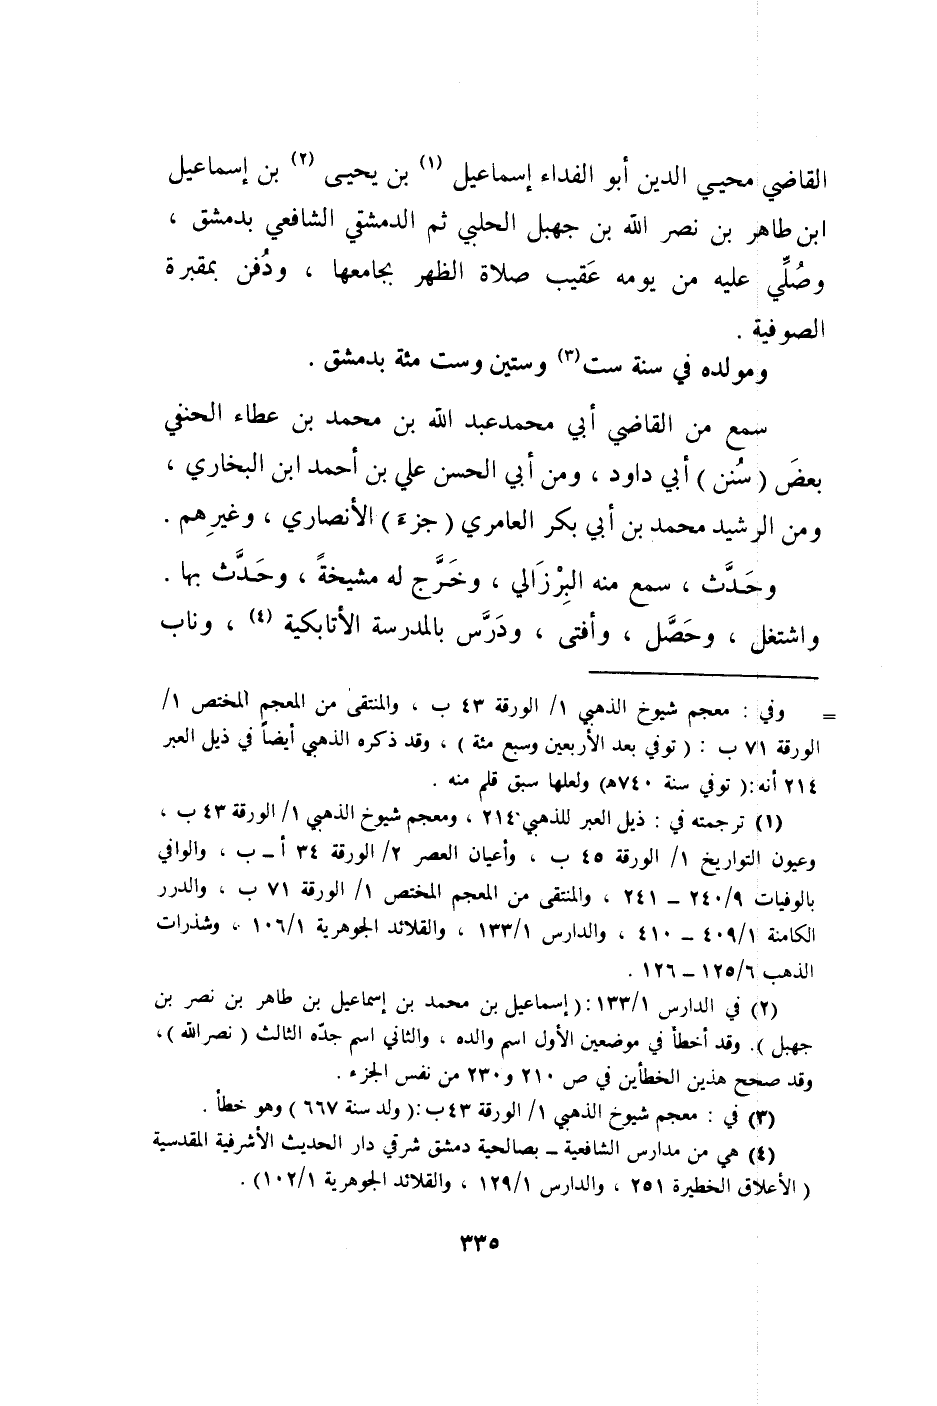 القاضي محيي الدين أبو الفداء إسماعيل (١) بن يحيى (٢) بن إسماعيل
ابن طاهر بن نصر الله بن جهبل الحلبي ثم الدمشقي الشافعي بدمشق ،
وصُلِّي عليه من يومه عَقيب صلاة الظهر بجامعها ، ودُفن بمقبرة
الصوفية .
ومولده في سنة ست(٣) وستين وست مئة بدمشق .
سمع من القاضي أبي محمدعبد الله بن محمد بن عطاء الحنفي
بعضَ ( سُنن ) أبي داود ، ومن أبي الحسن علي بن أحمد ابن البخاري ،
ومن الرشيد محمد بن أبي بكر العامري ( جزءَ ) الأنصاري ، وغيرِهم .
وحَدَّث ، سمع منه البِرْزَالي ، وخَرَّج له مشيخةً ، وحَدَّث بها .
واشتغل ، وحَصَّل ، وأفتى ، ودَرَّس بالمدرسة الأتابكية (٤) ، وناب
= وفي : معجم شيوخ الذهبي ١/ الورقة ٤٣ ب ، والمنتقى من المعجم المختص ١/
الورقة ٧١ ب : ( توفي بعد الأربعين وسبع مئة ) ، وقد ذكره الذهبي أيضاً في ذيل العبر
٢١٤ أنه :( توفي سنة ٧٤٠هـ) ولعلها سبق قلم منه .
(١) ترجمته في : ذيل العبر للذهبي ٢١٤ ، ومعجم شيوخ الذهبي ١/ الورقة ٤٣ ب ،
وعيون التواريخ ١/ الورقة ٤٥ ب ، وأعيان العصر ٢/ الورقة ٣٤ أ ـ ب ، والوافي
بالوفيات ٩/ ٢٤٠ ـ ٢٤١ ، والمنتقى من المعجم المختص ١/ الورقة ٧١ ب ، والدرر
الكامنة ١/ ٤٠٩ ـ ٤١٠ ، والدارس ١/ ١٣٣ ، والقلائد الجوهرية ١/ ١٠٦ ، وشذرات
الذهب ٦/ ١٢٥ ـ ١٢٦ .
(٢) في الدارس ١/ ١٣٣ :( إسماعيل بن محمد بن إسماعيل بن طاهر بن نصر بن
جهبل ). وقد أخطأ في موضعين الأول اسم والده ، والثاني اسم جدّه الثالث ( نصر الله )،
وقد صحح هذين الخطأين في ص ٢١٠ و٢٣٠ من نفس الجزء .
(٣) في : معجم شيوخ الذهبي ١/ الورقة ٤٣ب :( ولد سنة ٦٦٧ ) وهو خطأ .
(٤) هي من مدارس الشافعية ـ بصالحية دمشق شرقي دار الحديث الأشرفية المقدسية
( الأعلاق الخطيرة ٢٥١ ، والدارس ١/ ١٢٩ ، والقلائد الجوهرية ١/ ١٠٢) .
٣٣٥